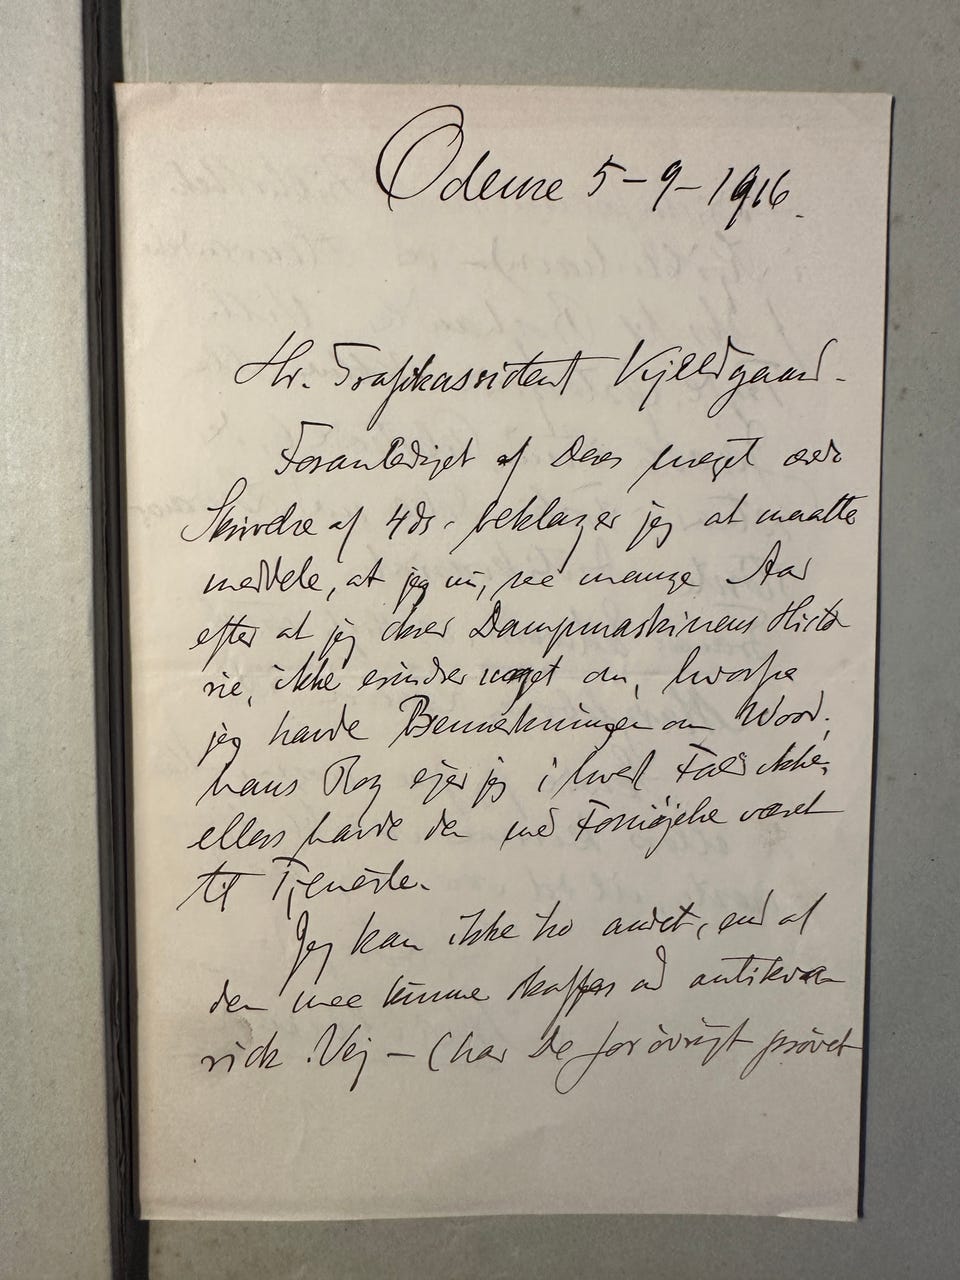 Odense 5-9-1916.
Hr. Trafikassistent Kjeldgaard.
Foranlediget af Deres meget ærede
Skrivelse af 4ds. beklager jeg at maatte
meddele, at jeg nu, saa mange Aar
efter at jeg skrev Dampmaskinens Histo
rie, ikke erindrer noget om, hvorfra
jeg havde Bemærkningen om Wood;
hans Bog ejer jeg i hvert Fald ikke,
ellers havde den med Fornøjelse været
til Tjeneste.
Jeg kan ikke tro andet, end at
den maa kunne skaffes ad antikva
risk Vej - (har De forøvrigt prøvet